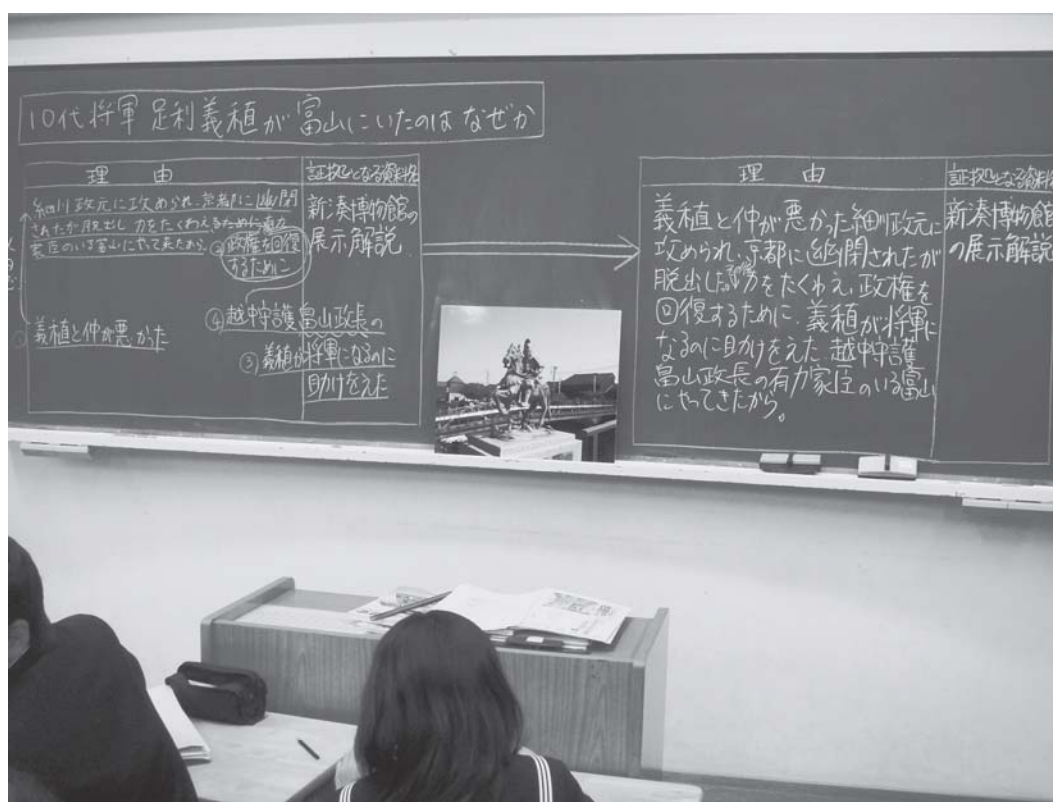 10代将軍 足利義稙が富山にいたのはなぜか
理由
証拠となる資料名
細川政元に攻められ、京都に幽閉
されたが脱出し 力をたくわえるために有力
家臣のいる富山にやって来たから。
②政権を回復
するために
新湊博物館の
展示解説
義稙と仲が悪かった
④越中守護畠山政長の
③義稙が将軍になるのに
助けをえた
理由
証拠となる資料名
義稙と仲が悪かった細川政元に
攻められ、京都に幽閉されたが
脱出した。力をたくわえ、政権を
回復するために、義稙が将軍に
なるのに助けをえた 越中守護
畠山政長の有力家臣のいる富山
にやってきたから。
新湊博物館
の展示解説